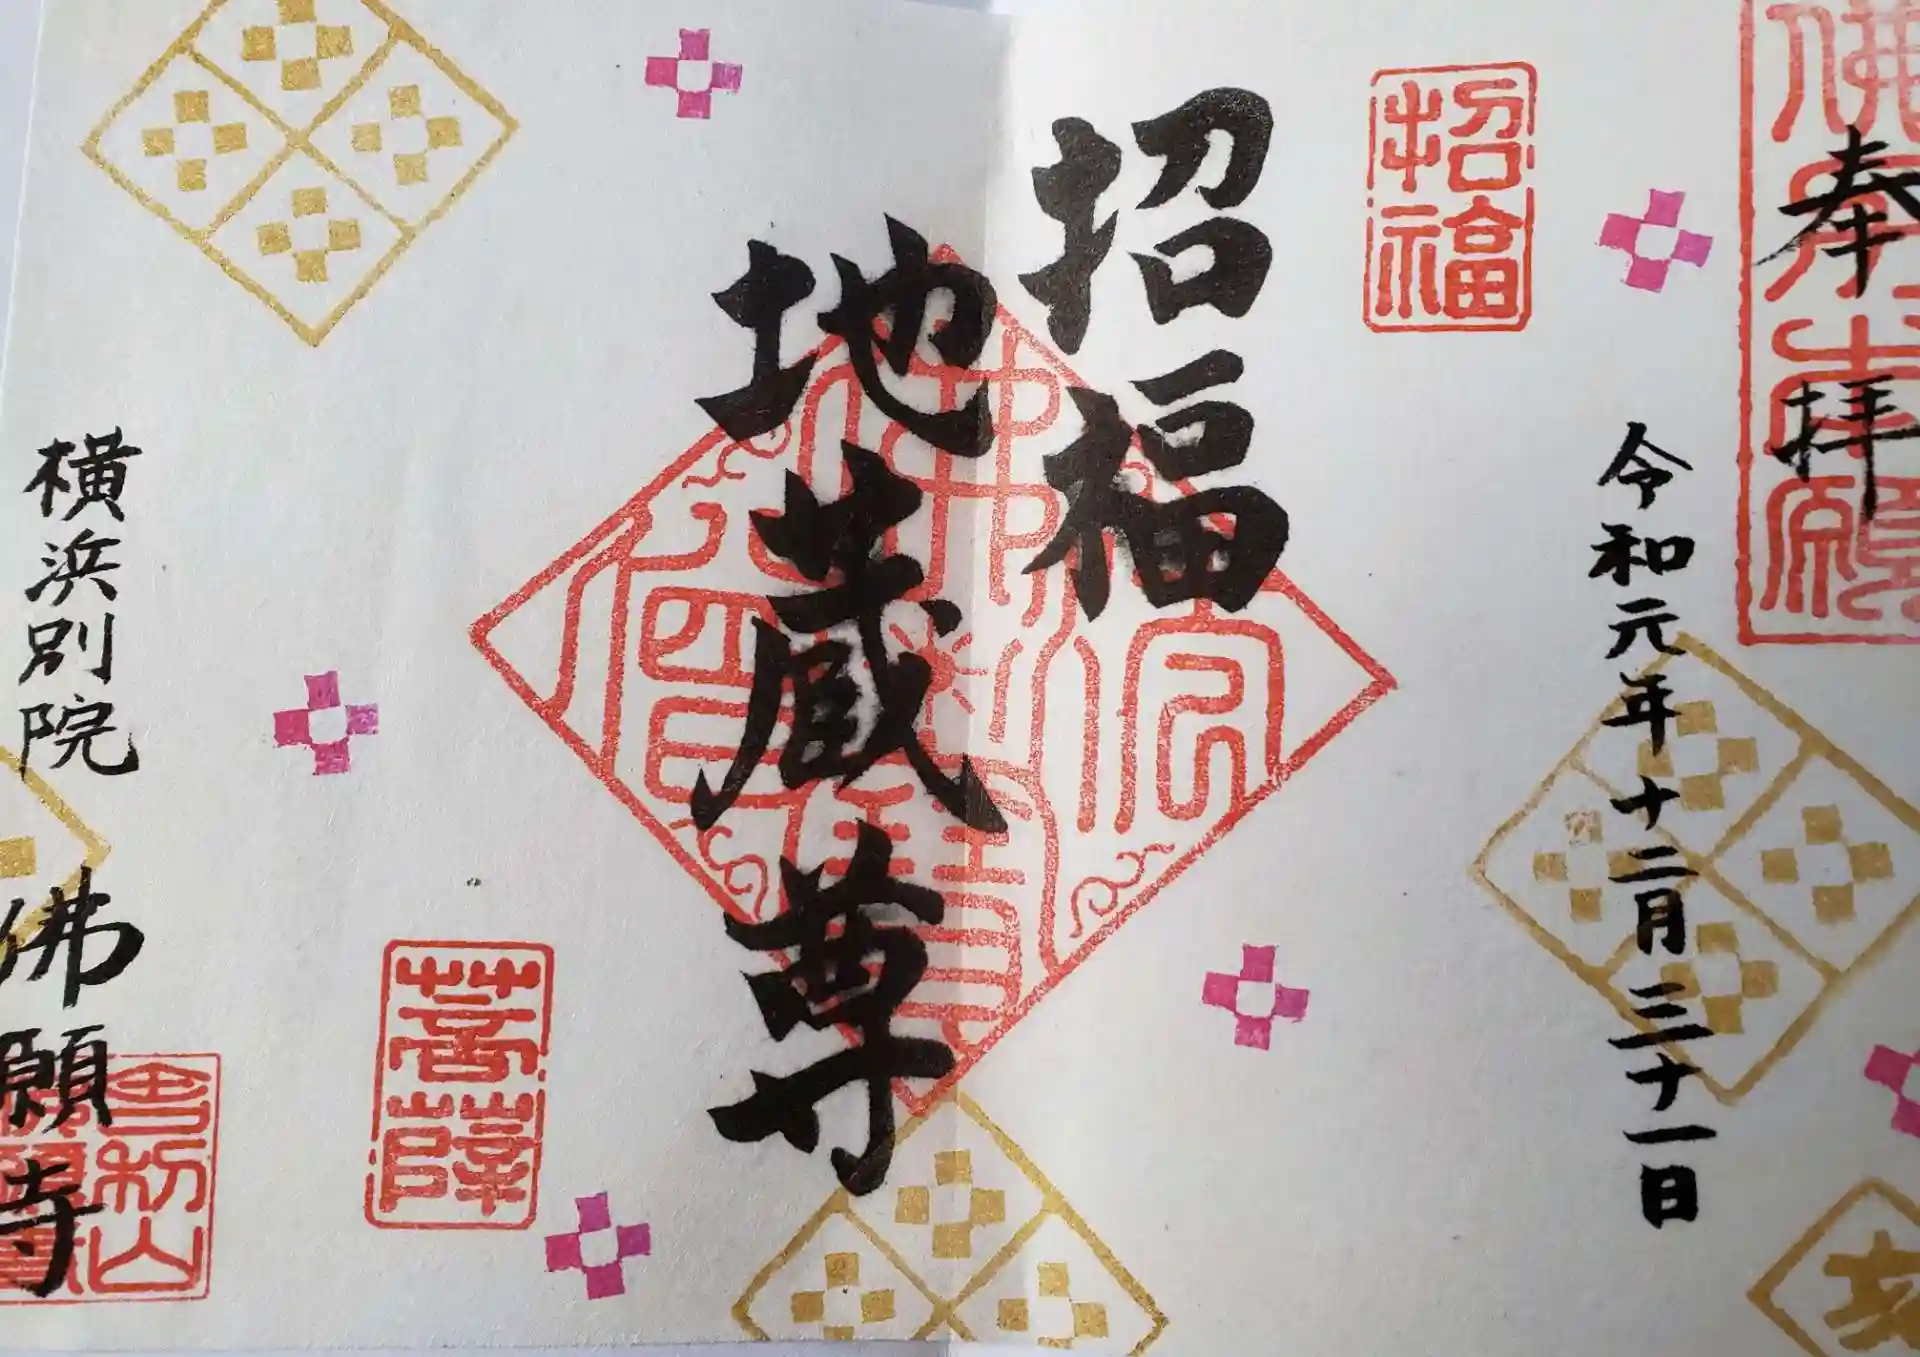 奉拝
令和元年十二月三十一日
招福
招福
地蔵尊
菩薩
横浜別院
佛願寺
舎利山